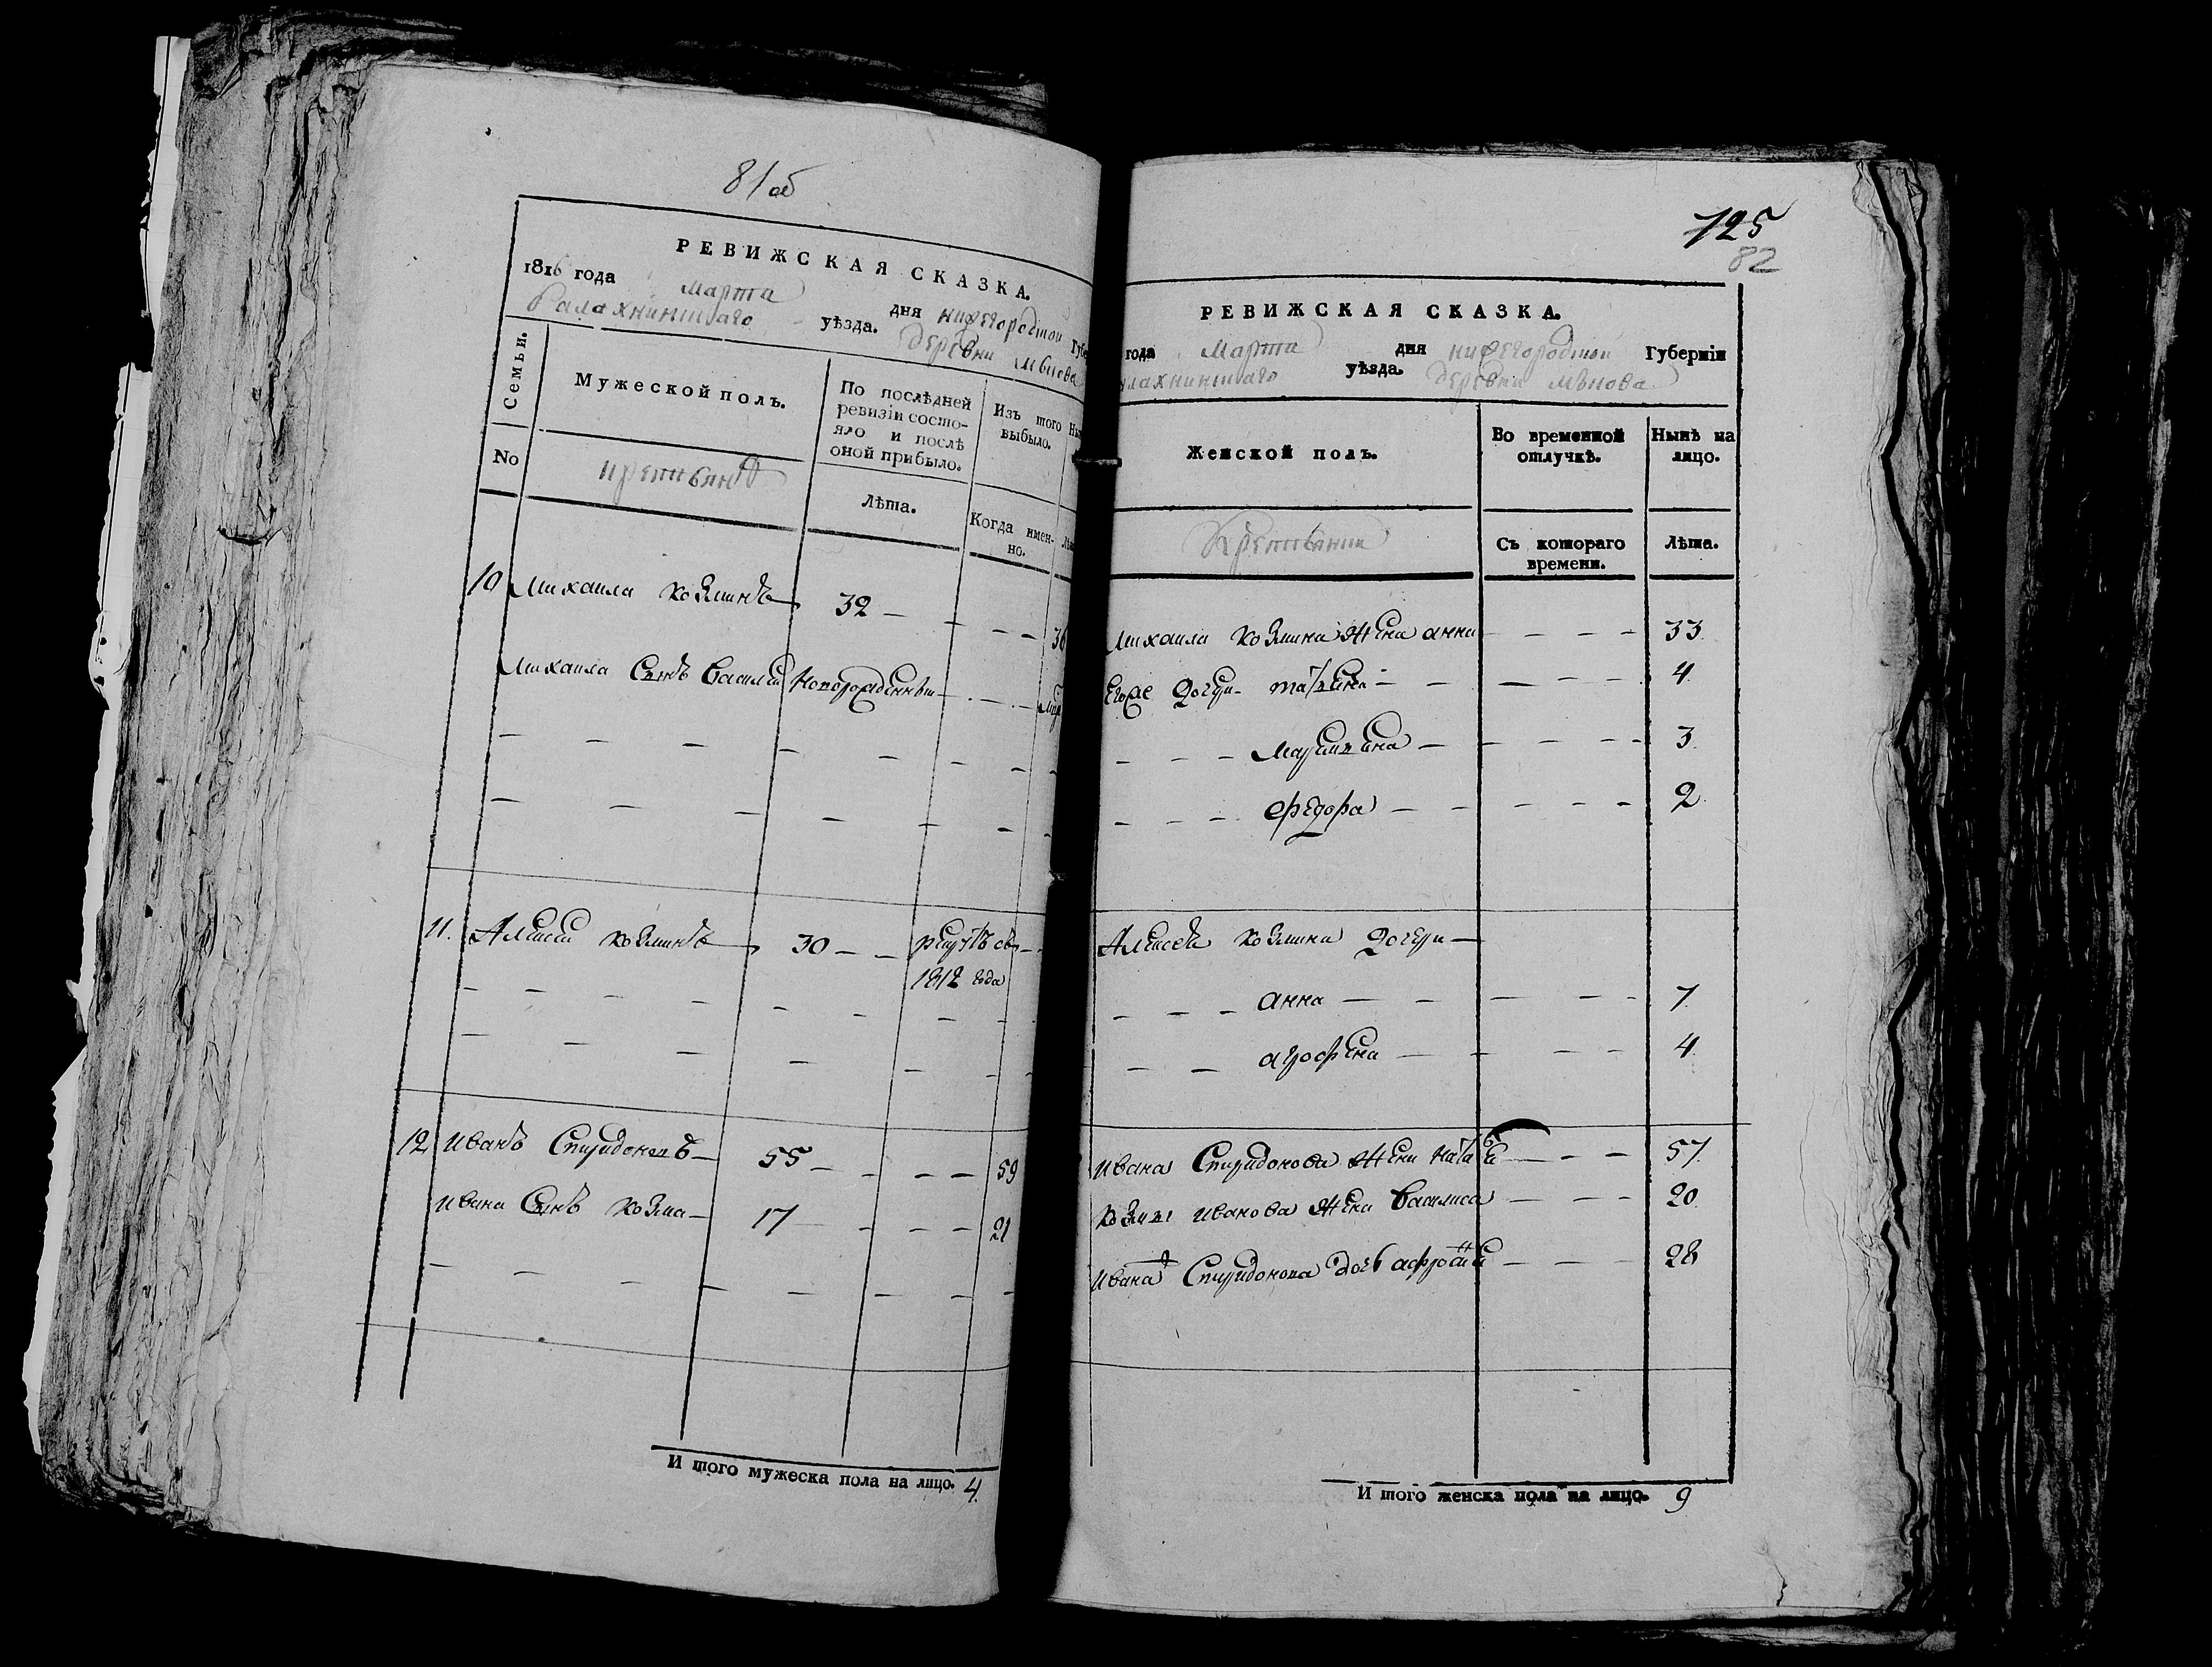 81 об
РЕВИЖСКАЯ СКАЗКА.
1816 года марта дня нижегородской Губе
Балахнинскаго уѣзда. деревни
Семьи.
No
Мужеской полъ.
По послѣдней ревизіи состо-
яло и послѣ оной прибыло.
Изъ того выбыло.
Ны
крестьянъ
Лѣта.
Когда имен-
но.
Лѣ
10 Михаила козминъ 32 36
Михаила сынъ василей новорожденный
11. Алексей козминъ 30 рекрутъ съ
1812 года
12 иванъ Спиридоновъ 55 59
ивана сынъ козма 17 21
И того мужеска пола на лицо. 4.
125
82
РЕВИЖСКАЯ СКАЗКА.
года Марта дня нижегородской Губерніи
лахнинскаго уѣзда. деревни
Женской полъ.
Во временной отлучкѣ.
Нынѣ на лицо.
Крестьянки
Съ котораго времени.
Лѣта.
Михаила козмина жена анна 33.
Егоже дочери татьяна 4.
3.
федора 2.
Алексея козмина дочери
анна 7.
агрофена 4.
ивана Спиридонова жена 57.
козмы иванова жена василиса 20.
ивана Спиридонова дочь 28
И того женска пола на лицо. 9